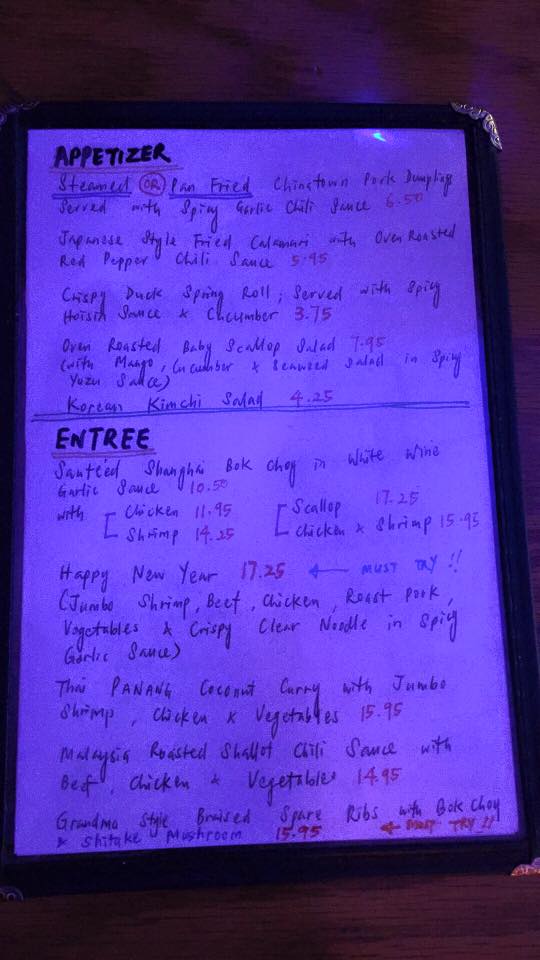 APPETIZER
Steamed OR Pan Fried Chinatown Pork Dumplings
Served with Spicy Garlic Chili Sauce 6.50
Japanese Style Fried Calamari with Oven Roasted
Red Pepper Chili Sauce 5.95
Crispy Duck Spring Roll; Served with Spicy
Hoisin Sauce & Cucumber 3.75
Oven Roasted Baby Scallop Salad 7.95
(with Mango, Cucumber & Seaweed Salad in Spicy
Yuzu Sauce)
Korean Kimchi Salad 4.25
ENTREE
Sautéed Shanghai Bok Choy in White Wine
Garlic Sauce 10.50
with [ Chicken 11.95 [ Scallop 17.25
Shrimp 14.25 Chicken & Shrimp 15.95
Happy New Year 17.25 ← MUST TRY !!
(Jumbo Shrimp, Beef, Chicken, Roast Pork,
Vegetables & Crispy Clear Noodle in Spicy
Garlic Sauce)
Thai PANANG Coconut Curry with Jumbo
Shrimp, Chicken & Vegetables 15.95
Malaysia Roasted Shallot Chili Sauce with
Beef, Chicken & Vegetables 14.95
Grandma Style Braised Spare Ribs with Bok Choy
& Shitake Mushroom 15.95 ← MUST TRY !!